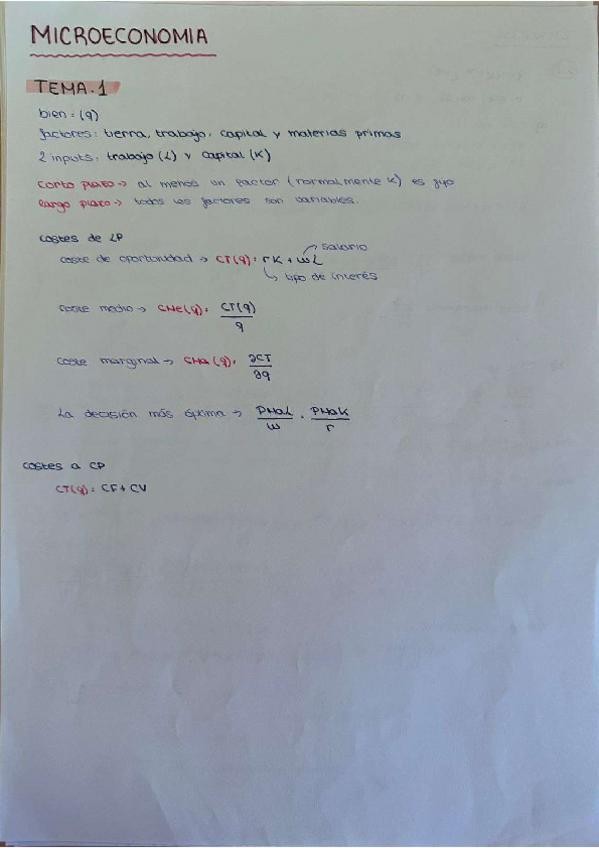 MICROECONOMIA
TEMA.1
bien = (q)
factores: tierra, trabajo, capital y materias primas
2 inputs: trabajo (L) y capital (K)
corto plazo → al menos un factor (normalmente K) es fijo
largo plazo → todos los factores son variables.
costes de LP
salario
coste de oportunidad → CT(q) = rK + wL
tipo de interés
coste medio → CMe(q) = CT(q)/q
coste marginal → CMa(q) = ∂CT/∂q
La decisión más óptima → PMaL/w = PMaK/r
costes a CP
CT(q) = CF + CV